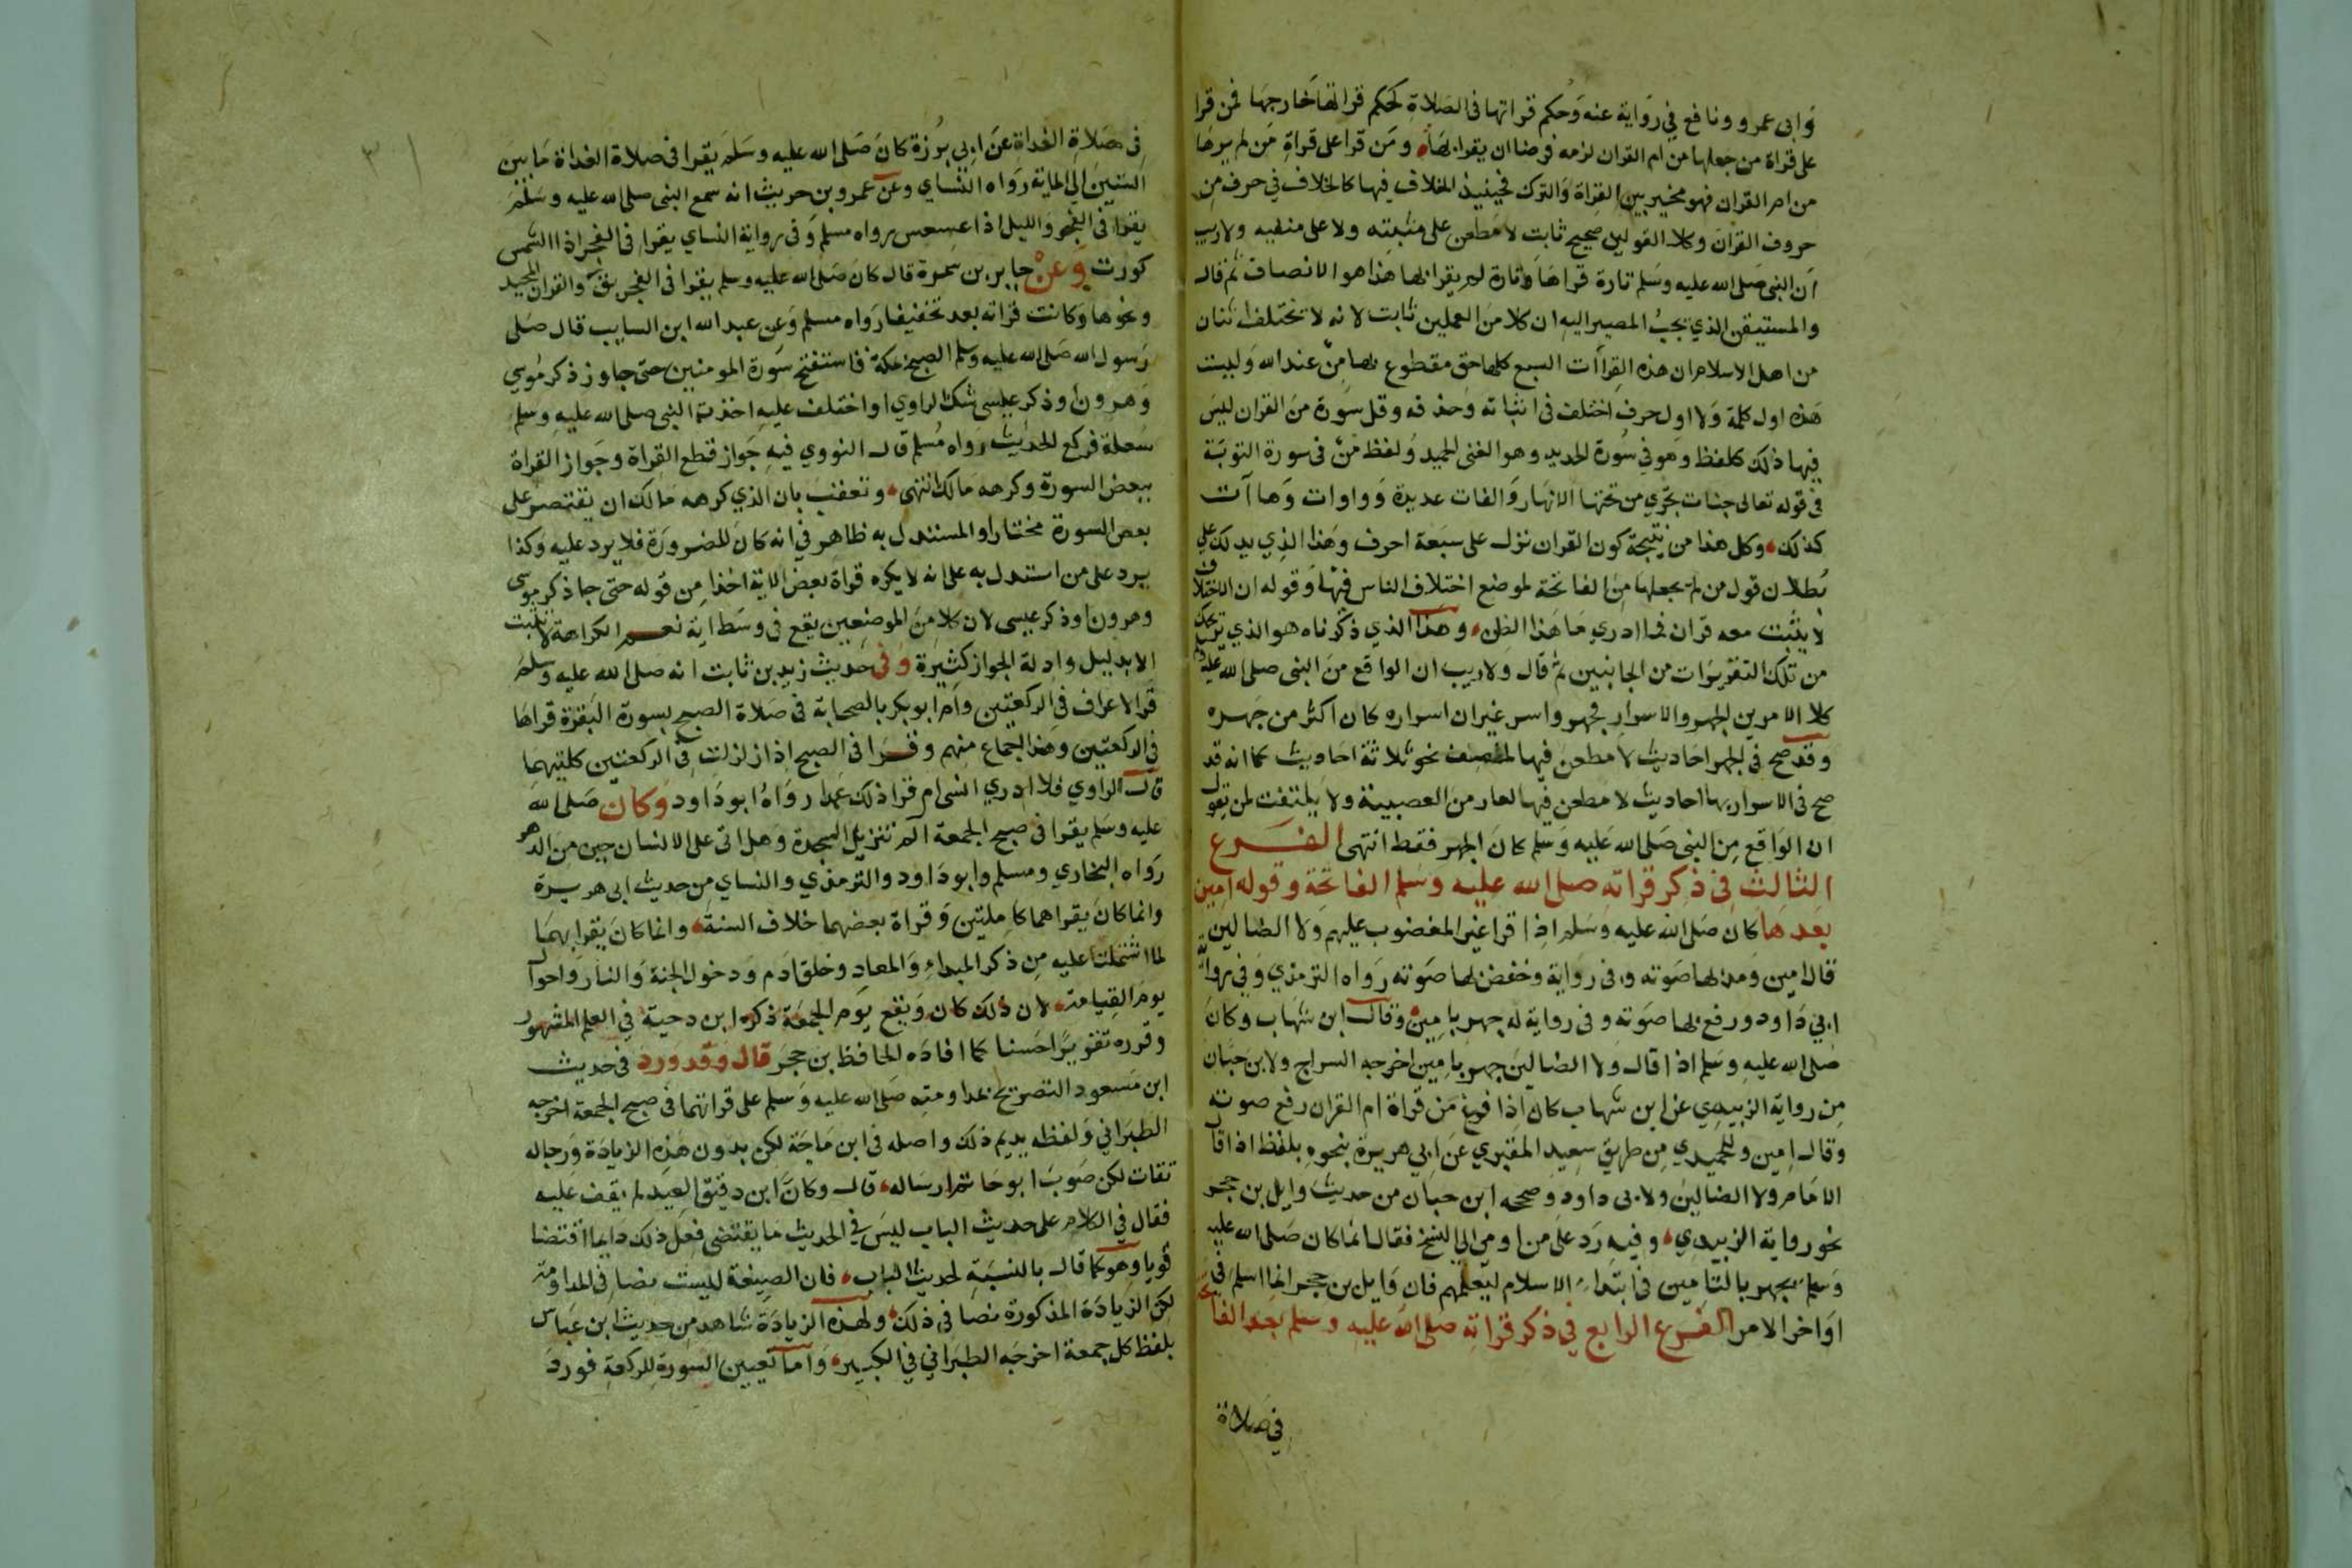 وابى عمرو ونافع في رواية عنه وحكم قراتها فى الصلاة كحكم قراتها خارجها فمن قرا
على قراة من جعلها من ام القران لزمه فرضا ان يقرا بها ومن قرا على قراة من لم يرها
من ام القران فهو مخير بين القراة والترك فحينيذ الخلاف فيها كالخلاف في حرف من
حروف القران وكلا القولين صحيح ثابت لا مطعن على مثبته ولا على منفيه ولا ريب
ان النبى صلى الله عليه وسلم تارة قراها وتارة لم يقرا بها هذا هو الانصاف ثم قال
والمستيقن الذي يجب المصير اليه ان كلا من العملين ثابت لانه لا يختلف اثنان
من اهل الاسلام ان هذه القراات السبع كلها حق مقطوع بها من عند الله وليست
هذه اول كلمة ولا اول حرف اختلف فى اثباته وحذفه وقل سورة من القران ليس
فيها ذلك كلفظ وهو في سورة الحديد وهو الغنى الحميد ولفظ من فى سورة التوبة
فى قوله تعالى جنات تجري من تحتها الانهار والفات عديدة وواوات وهاآت
كذلك وكل هذا من نتيجة كون القران نزل على سبعة احرف وهذا الذي يدلك على
بطلان قول من لم يجعلها من الفاتحة لموضع اختلاف الناس فيها وقوله ان الاختلاف
لا يثبت معه قران فما ادري ما هذا الظن وهذا الذي ذكرناه هو الذي يريحك
من تلك التقريرات من الجانبين ثم قال ولا ريب ان الواقع من النبى صلى الله عليه وسلم
كلا الامرين الجهر والاسرار فجهر واسر غير ان اسراره كان اكثر من جهره
وقد صح فى الجهر احاديث لا مطعن فيها لمنصف نحو ثلاثة احاديث كما انه قد
صح فى الاسرار بها احاديث لا مطعن فيها لعار من العصبية ولا يلتفت لمن يقول
ان الواقع من النبى صلى الله عليه وسلم كان الجهر فقط انتهى الفرع
الثالث في ذكر قراته صلى الله عليه وسلم الفاتحة وقوله امين
بعدها كان صلى الله عليه وسلم اذا قرا غير المغضوب عليهم ولا الضالين
قال امين ومد بها صوته وفى رواية وخفض بها صوته رواه الترمذي وفي رواية
ابي داود ورفع بها صوته وفى رواية له جهر بامين وقال ابن شهاب وكان
صلى الله عليه وسلم اذا قال ولا الضالين جهر بامين اخرجه السراج ولابن حبان
من رواية الزبيدي عن ابن شهاب كان اذا فرغ من قراة ام القران رفع صوته
وقال امين وللحميدي من طريق سعيد المقبري عن ابي هريرة بنحوه بلفظ اذا قال
الامام ولا الضالين ولابى داود وصححه ابن حبان من حديث وايل بن حجر
نحو رواية الزبيدي وفيه رد على من اومى الي النسخ فقال انما كان صلى الله عليه
وسلم يجهر بالتامين فى ابتداء الاسلام ليعلمهم فان وايل بن حجر انما اسلم فى
اواخر الامر الفرع الرابع في ذكر قراته صلى الله عليه وسلم بعد الفاتحة
في صلاة
٣٠١
فى صلاة الغداة عن ابي برزة كان صلى الله عليه وسلم يقرا فى صلاة الغداة ما بين
الستين الي الماية رواه النساي وعن عمرو بن حريث انه سمع النبى صلى الله عليه وسلم
يقرا فى الفجر والليل اذا عسعس رواه مسلم وفى رواية النساي يقرا فى الفجر اذا الشمس
كورت وعن جابر بن سمرة قال كان صلى الله عليه وسلم يقرا فى الفجر بق والقران المجيد
ونحوها وكانت قراته بعد تخفيفا رواه مسلم وعن عبد الله ابن السايب قال صلى
رسول الله صلى الله عليه وسلم الصبح بمكة فاستفتح سورة المومنين حتى جاوز ذكر موسي
وهرون اوذكر عيسى شك الراوي او اختلف عليه اخذت النبى صلى الله عليه وسلم
سعلة فركع الحديث رواه مسلم قال النووي فيه جواز قطع القراة وجواز القراة
ببعض السورة وكرهه مالك انتهى وتعقب بان الذي كرهه مالك ان يقتصر على
بعض السورة مختارا والمستدل به ظاهر في انه كان للضرورة فلا يرد عليه وكذا
يرد على من استدل به على انه لا يكره قراة بعض الاية اخذا من قوله حتى جا ذكر موسى
وهرون او ذكر عيسى لان كلا من الموضعين يقع فى وسط اية نعم الكراهة لا تثبت
الا بدليل وادلة الجواز كثيرة وفى حديث زيد بن ثابت انه صلى الله عليه وسلم
قرا الاعراف فى الركعتين وام ابو بكر بالصحابة فى صلاة الصبح بسورة البقرة قراها
في الركعتين وهذا اجماع منهم وقرا فى الصبح اذا زلزلت فى الركعتين كلتيهما
قال الراوي فلا ادري انسى ام قرا ذلك عمدا رواه ابو داود وكان صلى الله
عليه وسلم يقرا فى صبح الجمعة الم تنزيل السجدة وهل اتى على الانسان حين من الدهر
رواه البخاري ومسلم وابو داود والترمذي والنساي من حديث ابى هريرة
وانما كان يقراهما كاملتين وقراة بعضهما خلاف السنة وانما كان يقرا بهما
لما اشتملتا عليه من ذكر المبداء والمعاد وخلق ادم ودخول الجنة والنار واحوال
يوم القيامة لان ذلك كان ويقع يوم الجمعة ذكره ابن دحية في العلم المشهور
وقرره تقريرا حسنا كما افاده الحافظ بن حجر قال وقد ورد فى حديث
ابن مسعود التصريح بمداومته صلى الله عليه وسلم على قراتهما فى صبح الجمعة اخرجه
الطبراني ولفظه يديم ذلك واصله فى ابن ماجة لكن بدون هذه الزيادة ورجاله
ثقات لكن صوب ابو حاتم ارساله قال وكان ابن دقيق العيد لم يقف عليه
فقال في الكلام على حديث الباب ليس في الحديث ما يقتضى فعل ذلك دايما اقتضا
قويا وهو كما قال بالنسبة لحديث الباب فان الصيغة ليست نصا فى المداومة
لكن الزيادة المذكورة نصا فى ذلك ولهذه الزيادة شاهد من حديث ابن عباس
بلفظ كل جمعة اخرجه الطبراني في الكبير واما تعيين السورة للركعة فورد